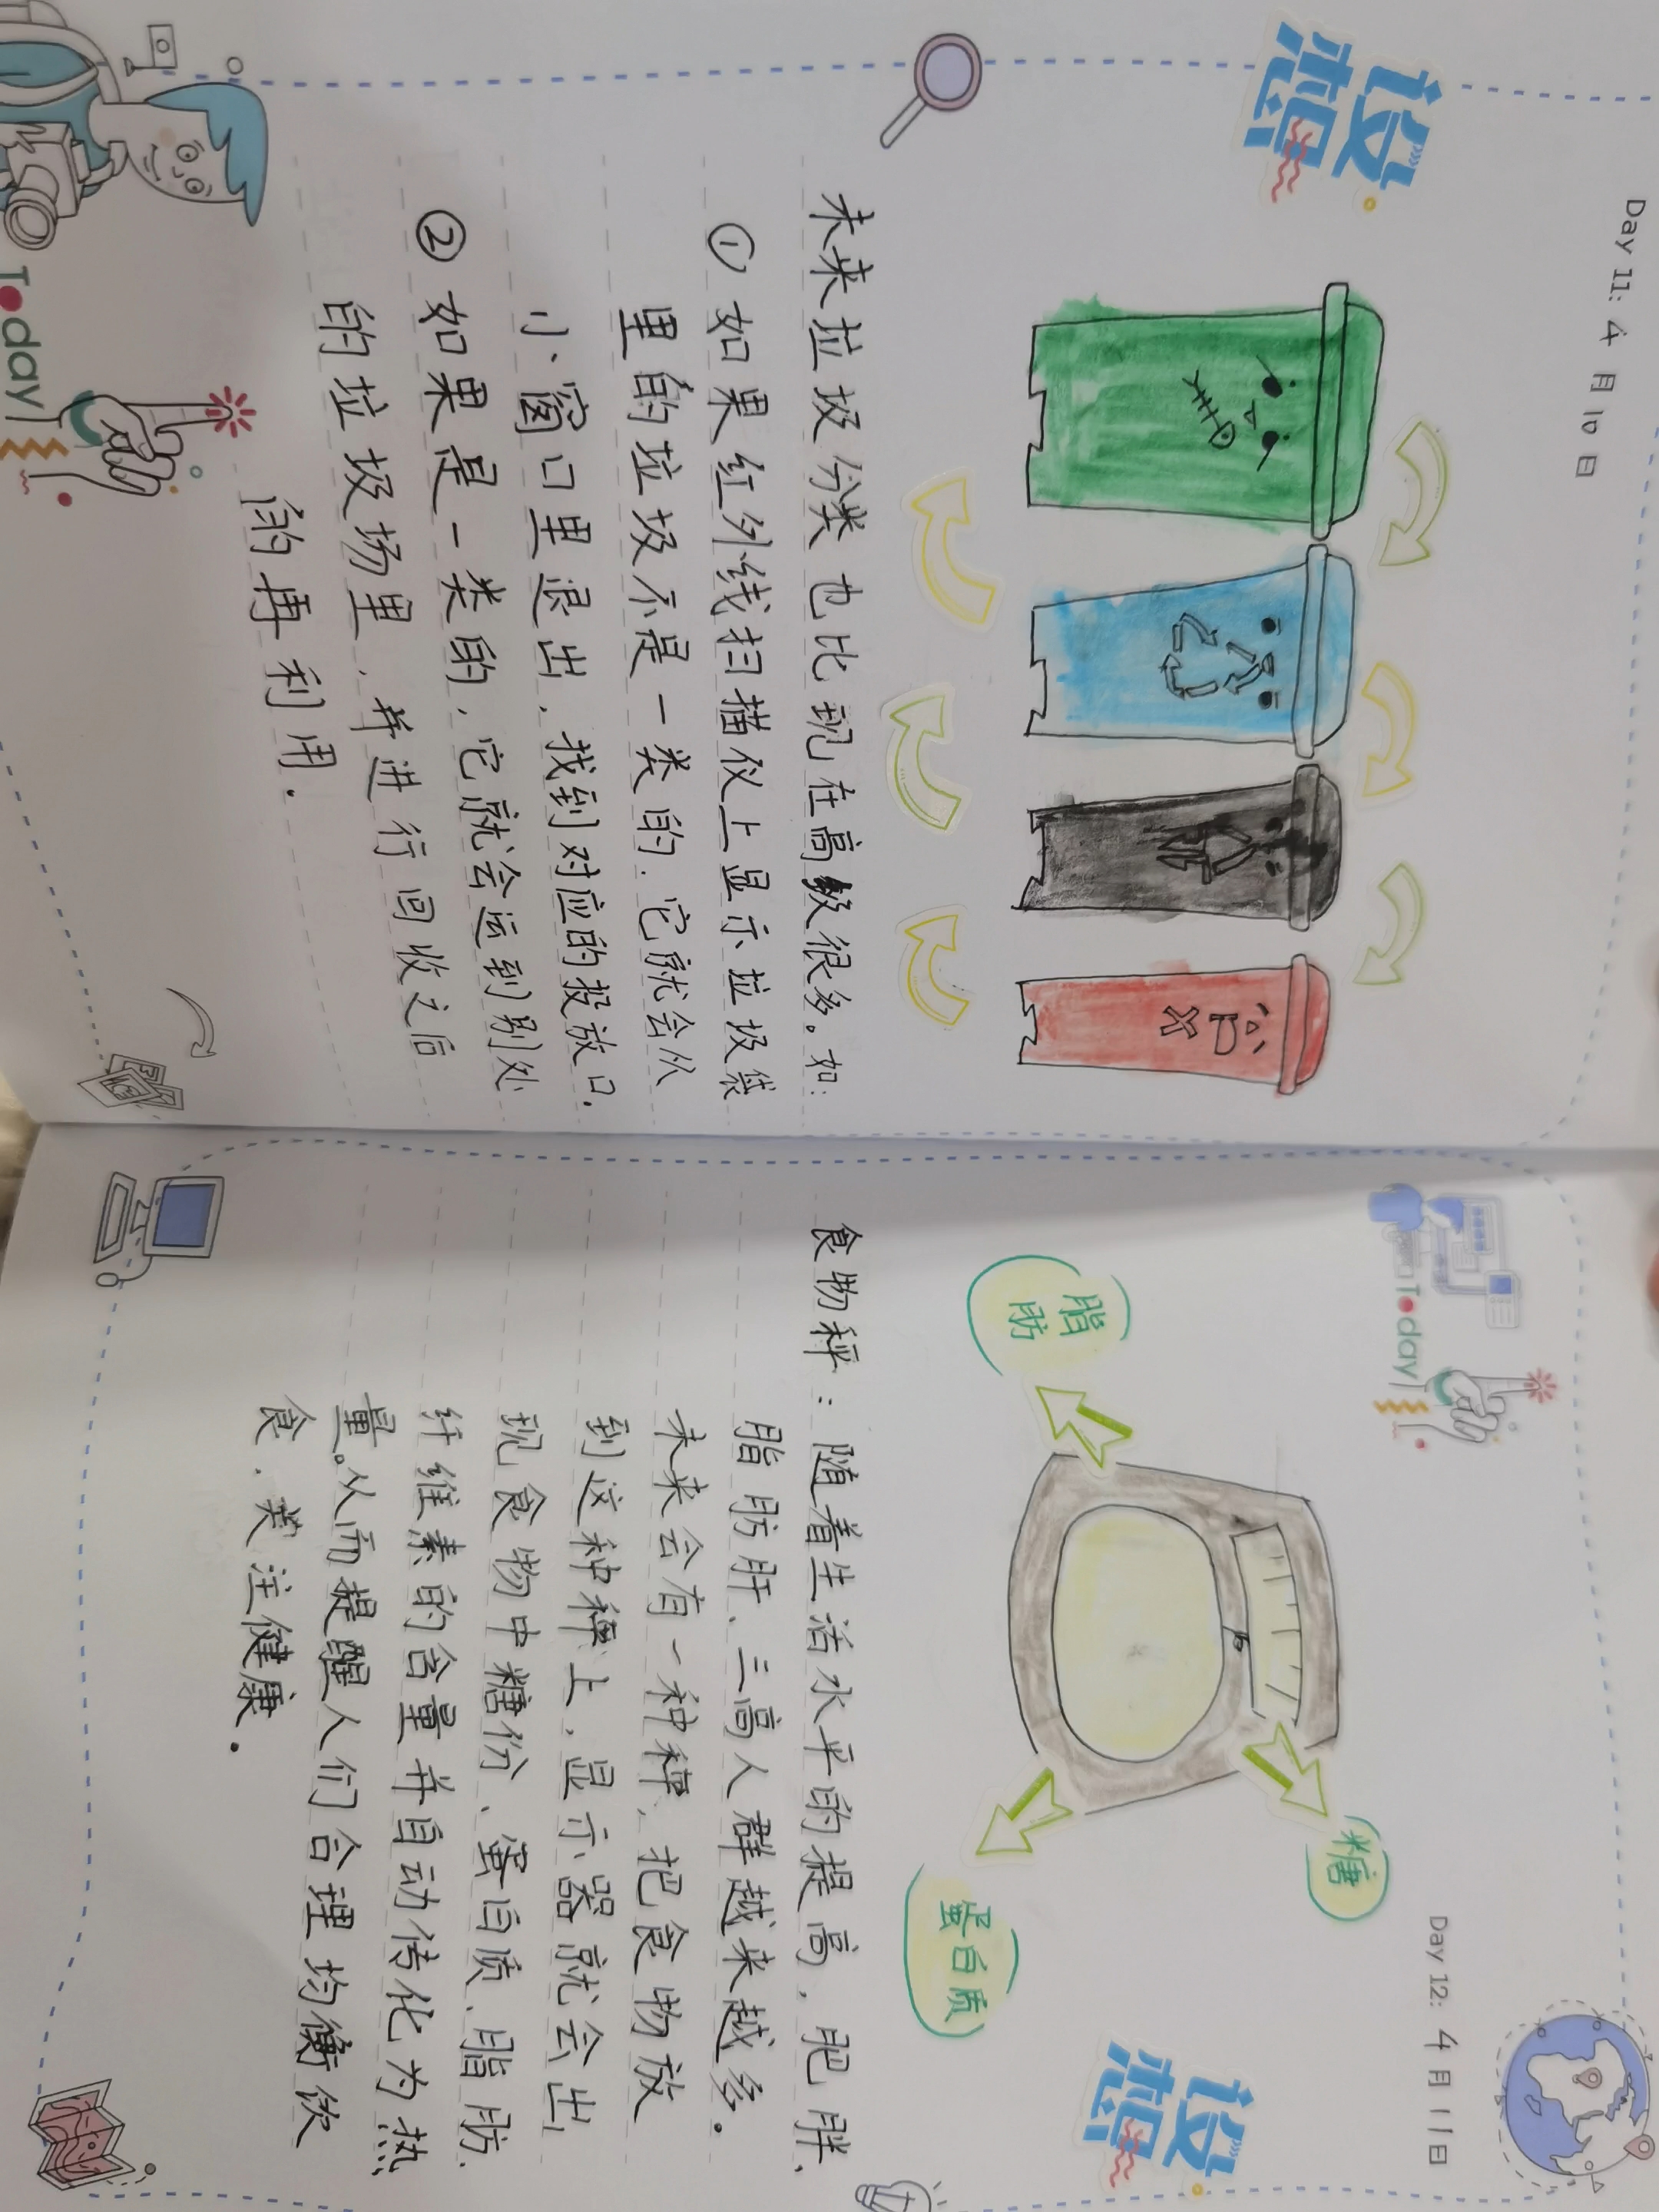 Day 11: 4月10日
设想
未来垃圾分类也比现在高级很多。如:
① 如果红外线扫描仪上显示垃圾袋
里的垃圾不是一类的.它就会从
小窗口里退出.找到对应的投放口.
② 如果是一类的.它就会运到别处
的垃圾场里.并进行回收之后
的再利用.
Today
Today
Day 12: 4月11日
设想
脂肪
糖
蛋白质
食物秤:随着生活水平的提高,肥胖、
脂肪肝、三高人群越来越多.
未来会有一种秤,把食物放
到这种秤上,显示器就会出
现食物中糖份、蛋白质、脂肪.
纤维素的含量并自动传化为热
量。从而提醒人们合理均衡饮
食.关注健康.